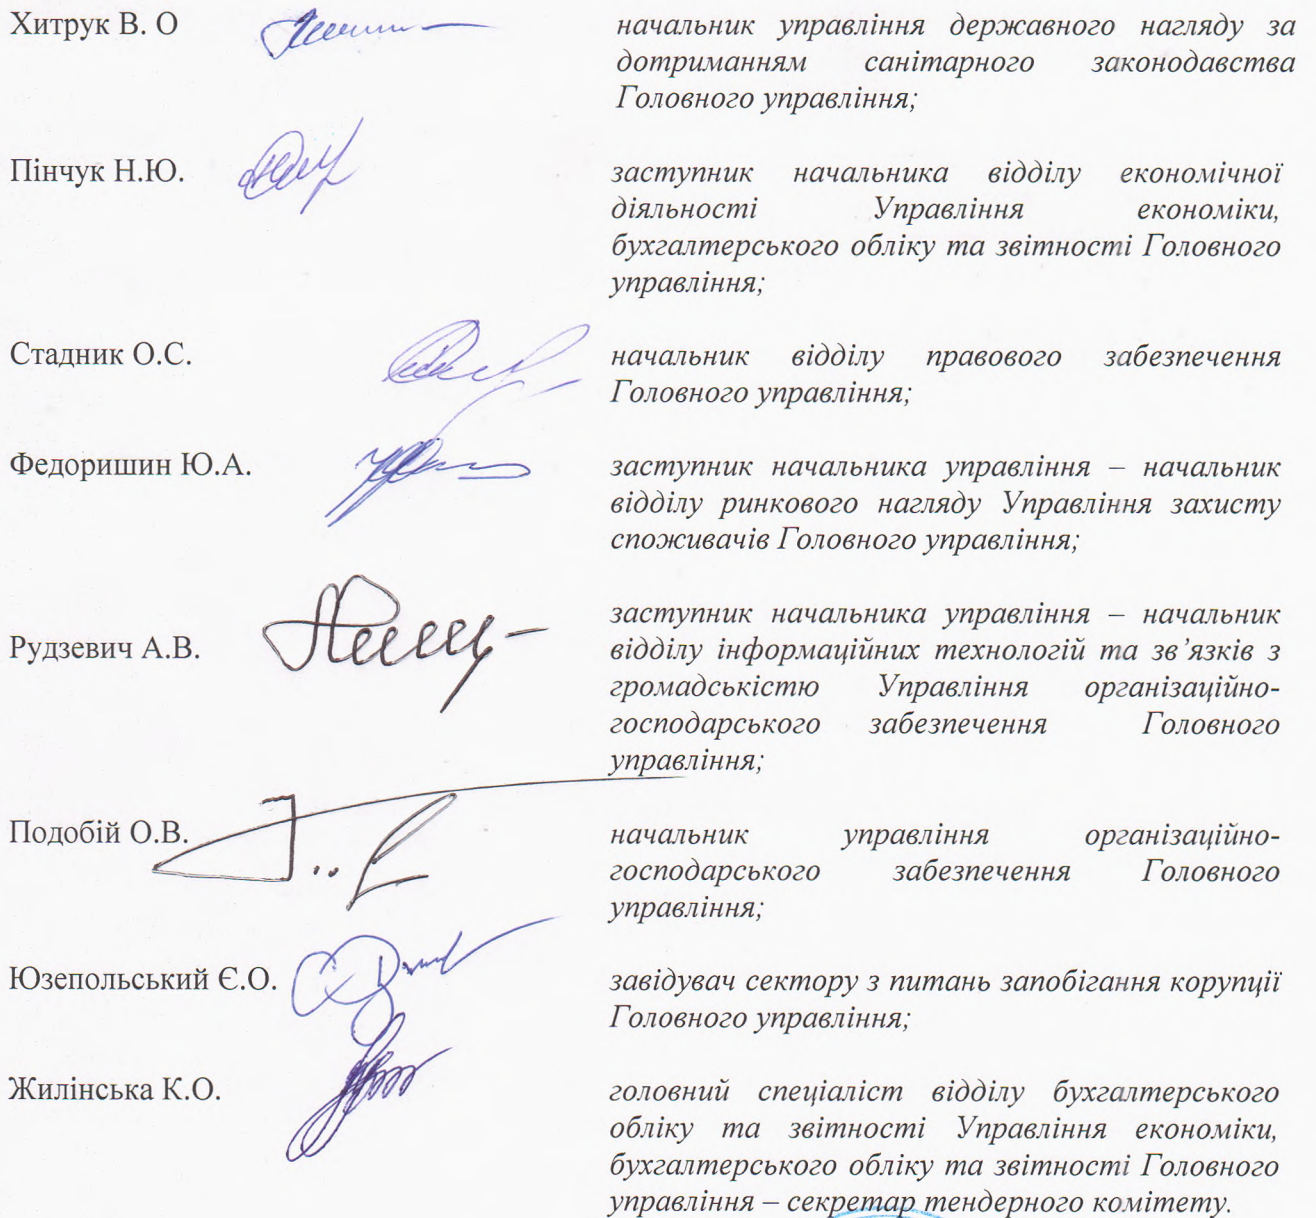 Хитрук В. О
начальник управління державного нагляду за
дотриманням санітарного законодавства
Головного управління;
Пінчук Н.Ю.
заступник начальника відділу економічної
діяльності Управління економіки,
бухгалтерського обліку та звітності Головного
управління;
Стадник О.С.
начальник відділу правового забезпечення
Головного управління;
Федоришин Ю.А.
заступник начальника управління – начальник
відділу ринкового нагляду Управління захисту
споживачів Головного управління;
Рудзевич А.В.
заступник начальника управління – начальник
відділу інформаційних технологій та зв’язків з
громадськістю Управління організаційно-
господарського забезпечення Головного
управління;
Подобій О.В.
начальник управління організаційно-
господарського забезпечення Головного
управління;
Юзепольський Є.О.
завідувач сектору з питань запобігання корупції
Головного управління;
Жилінська К.О.
головний спеціаліст відділу бухгалтерського
обліку та звітності Управління економіки,
бухгалтерського обліку та звітності Головного
управління – секретар тендерного комітету.